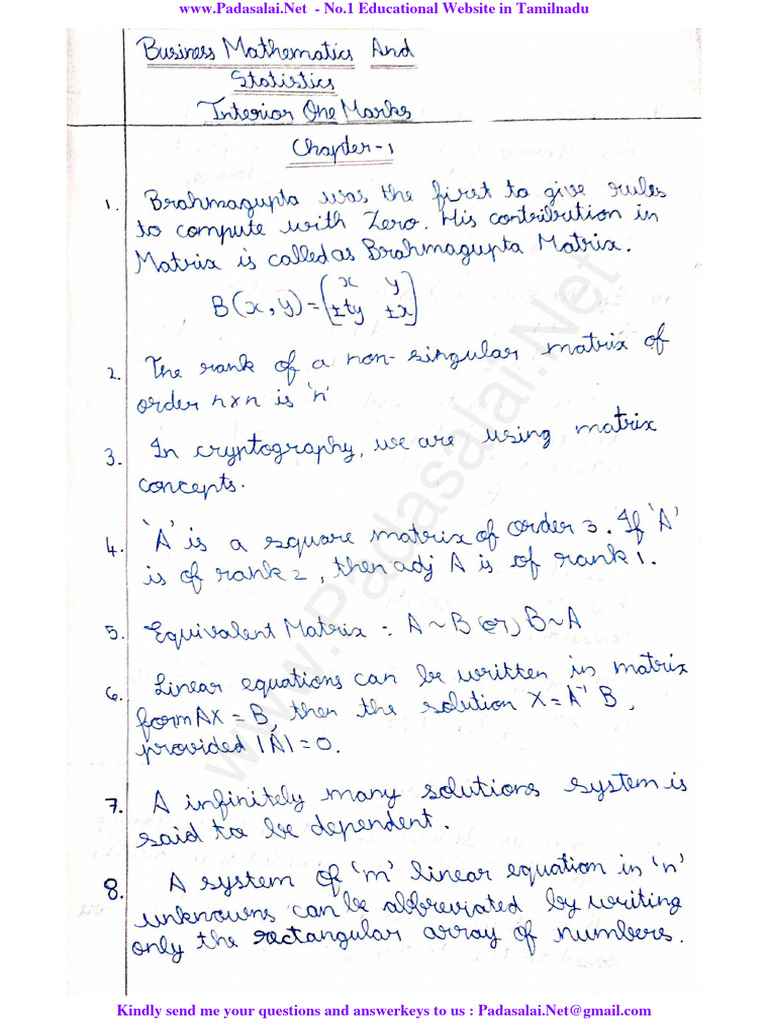 www.Padasalai.Net - No.1 Educational Website in Tamilnadu
Business Mathematics And
Statistics
Interior One Marks
Chapter-1
1. Brahmagupta was the first to give rules
to compute with Zero. His contribution in
Matrix is called as Brahmagupta Matrix.
B(x,y)=(x y
±ty ±x)
2. The rank of a non-singular matrix of
order nxn is 'n'
3. In cryptography, we are using matrix
concepts.
4. 'A' is a square matrix of order 3. If 'A'
is of rank 2, then adj A is of rank 1.
5. Equivalent Matrix = A~B (or) B~A
6. Linear equations can be written in matrix
form AX = B, then the solution X = A⁻¹ B,
provided |A| = 0.
7. A infinitely many solutions system is
said to be dependent.
8. A system of 'm' linear equation in 'n'
unknowns can be abbreviated by writing
only the rectangular array of numbers.
www.Padasalai.Net
Kindly send me your questions and answerkeys to us : Padasalai.Net@gmail.com